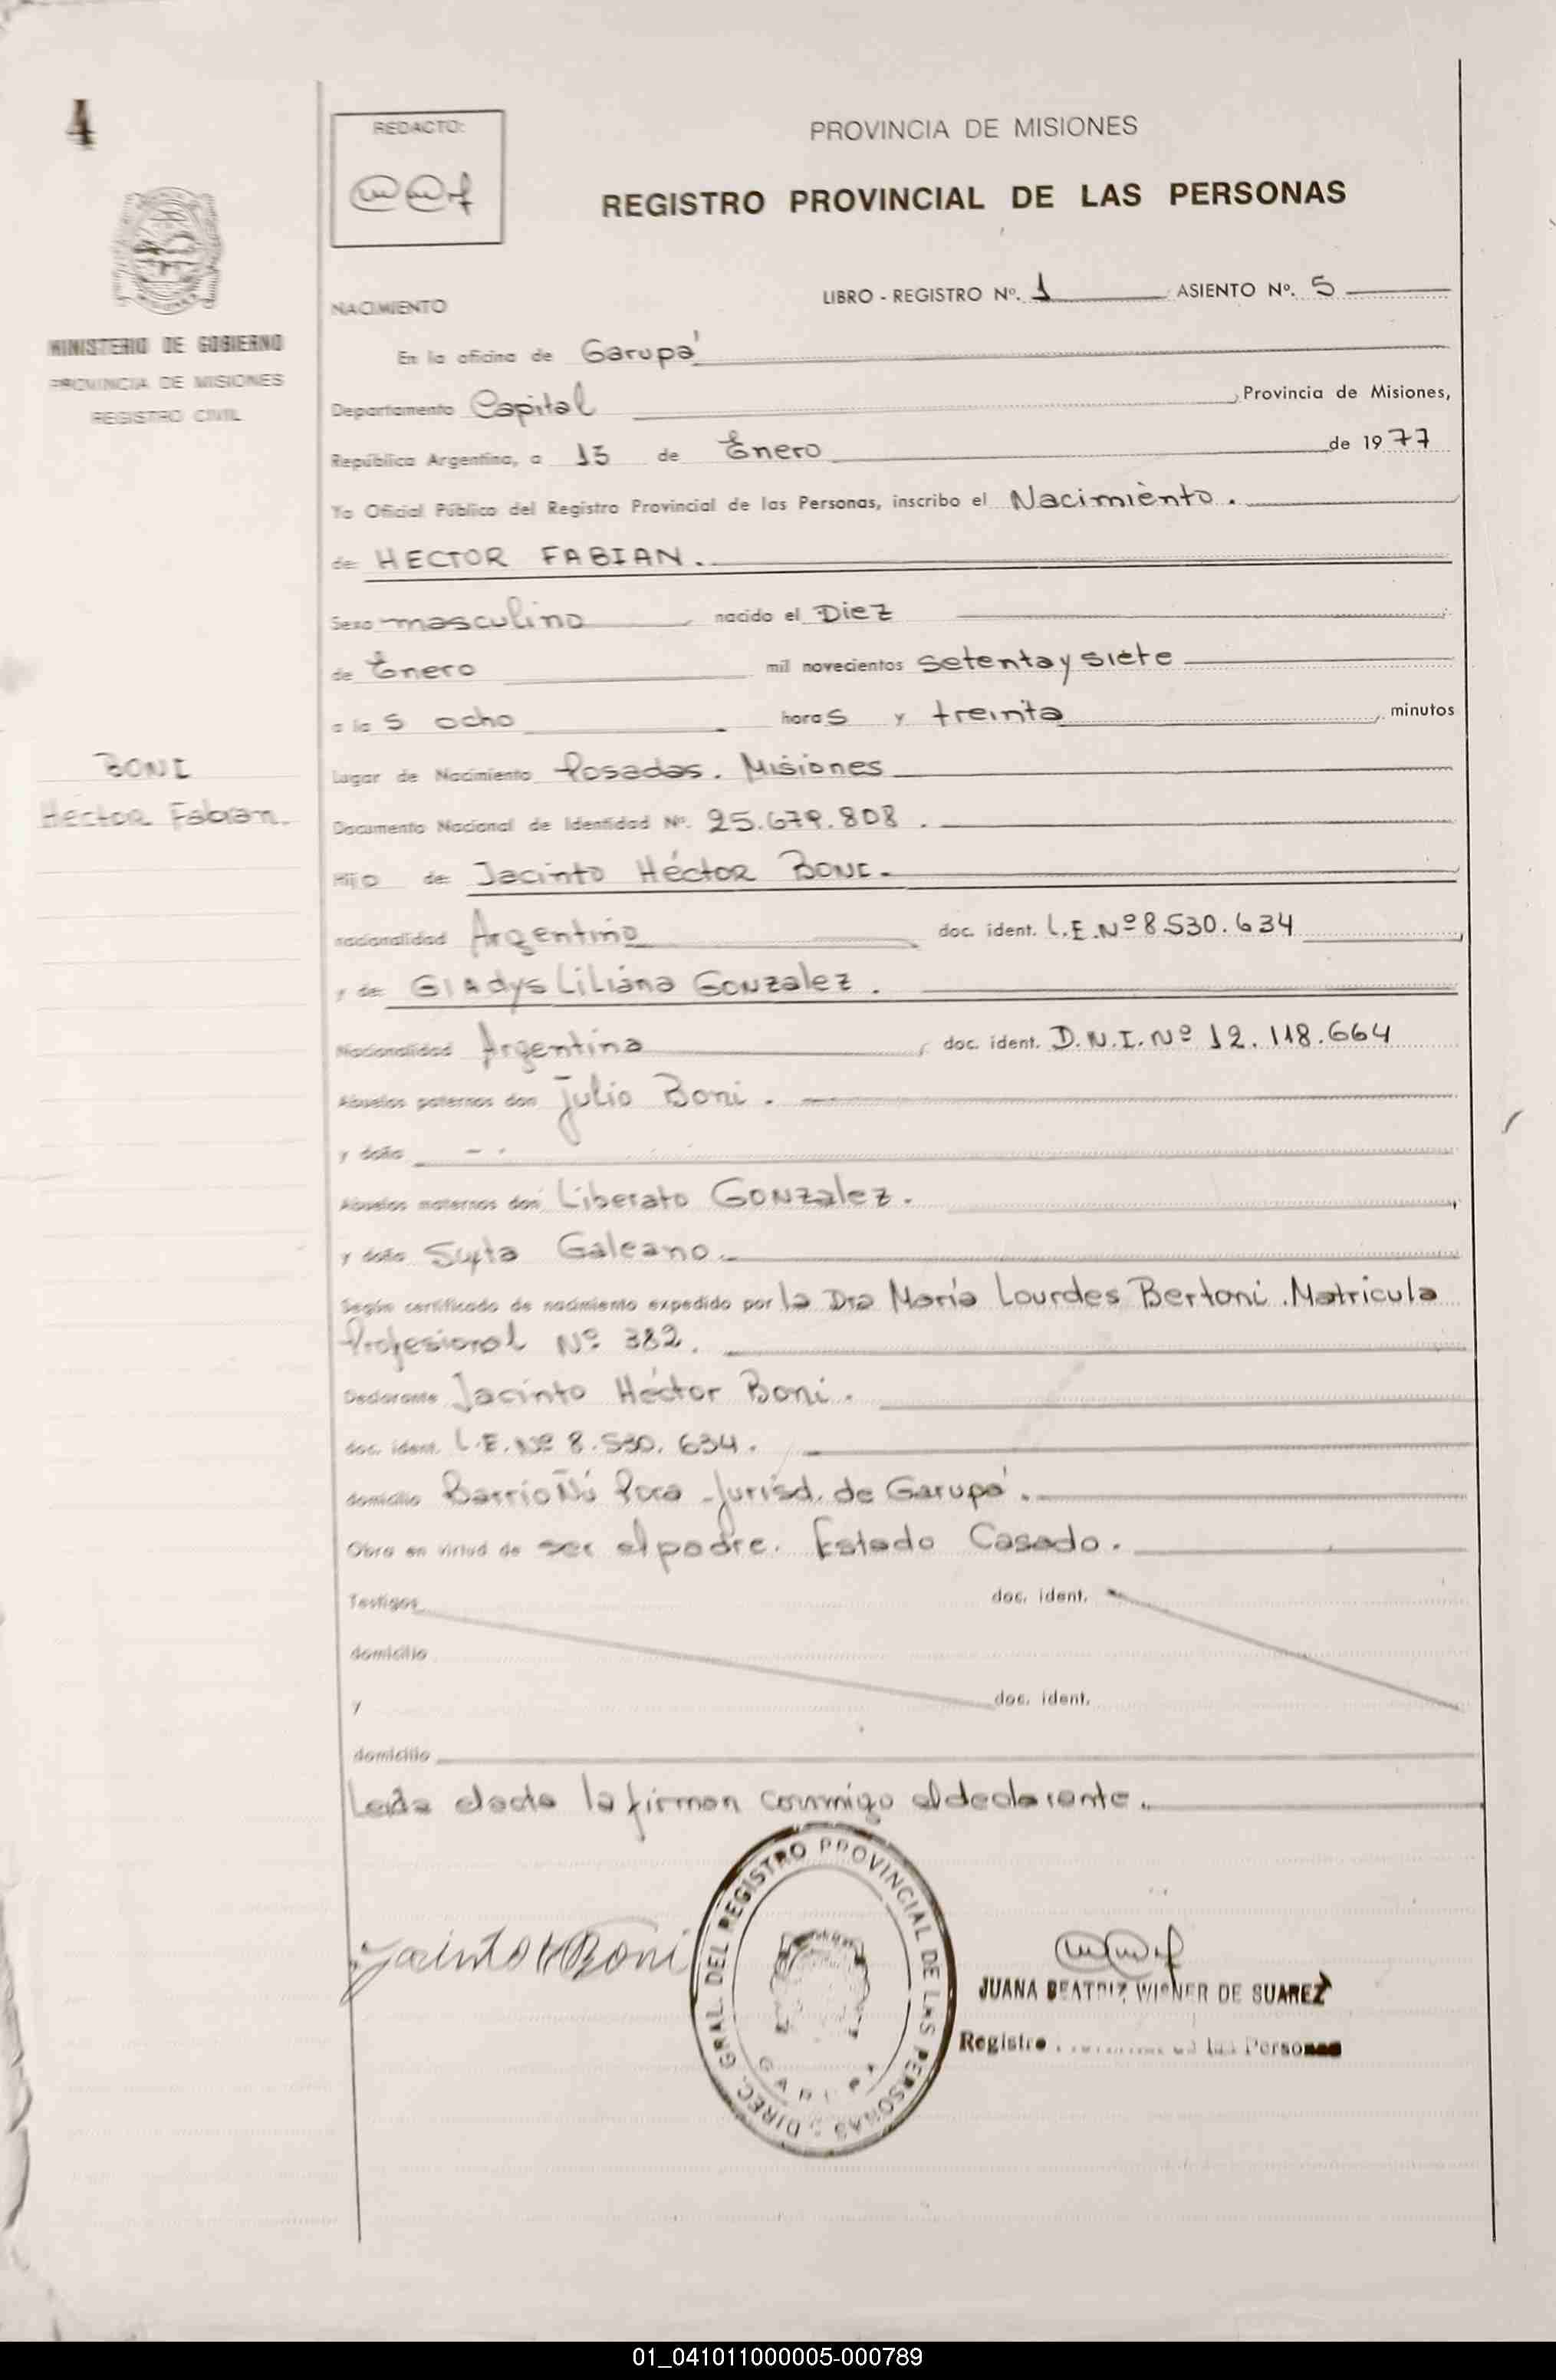 4
REDACTO:
PROVINCIA DE MISIONES
REGISTRO PROVINCIAL DE LAS PERSONAS
MINISTERIO DE GOBIERNO
PROVINCIA DE MISIONES
REGISTRO CIVIL
NACIMIENTO
LIBRO - REGISTRO Nº. 1 ASIENTO Nº. 5
En la oficina de Garupá
Departamento Capital, Provincia de Misiones,
República Argentina, a 15 de Enero de 1977
Yo Oficial Público del Registro Provincial de las Personas, inscribo el Nacimiento.
de: HECTOR FABIAN.
Sexo masculino nacido el Diez
de Enero mil novecientos setenta y siete
a la s ocho hora s y treinta, minutos
BONI
Hector Fabian.
Lugar de Nacimiento Posadas. Misiones
Documento Nacional de Identidad Nº. 25.679.808.
Hijo de: Jacinto Héctor BONI.
nacionalidad Argentino doc. ident. L.E.Nº 8.530.634
y de: Gladys Liliana Gonzalez.
Nacionalidad Argentina, doc. ident. D.N.I.Nº 12.118.664
Abuelos paternos don Julio Boni.
y doña - .
Abuelos maternos don Liberato Gonzalez.
y doña Syxta Galeano.
Según certificado de nacimiento expedido por la Dra María Lourdes Bertoni. Matricula
Profesional Nº 382.
Declarante Jacinto Héctor Boni.
doc. ident. L.E. Nº 8.530.634.
domicilio Barrio Ñú Porá - Jurisd. de Garupá.
Obra en virtud de ser el padre. Estado Casado.
Testigos doc. ident.
domicilio
y doc. ident.
domicilio
Leída elacta la firman conmigo el declarante.
Jacinto H Boni
DIREC. GRAL. DEL REGISTRO PROVINCIAL DE LAS PERSONAS
GARUPA
JUANA BEATRIZ WIENER DE SUAREZ
Registro de las Personas
01_041011000005-000789